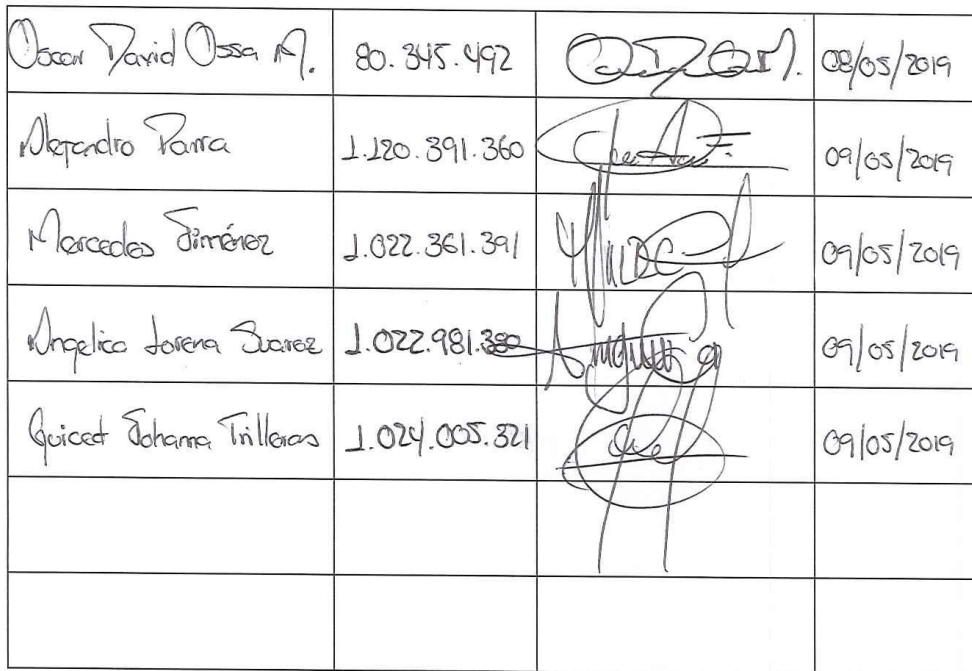 Oscar David Ossa M. 80.345.492 08/05/2019
Alejandro Parra 1.120.391.360 09/05/2019
Mercedes Jiménez 1.022.361.391 09/05/2019
Angelica Lorena Suarez 1.022.981.380 09/05/2019
Guicet Johanna Trilleras 1.024.005.321 09/05/2019